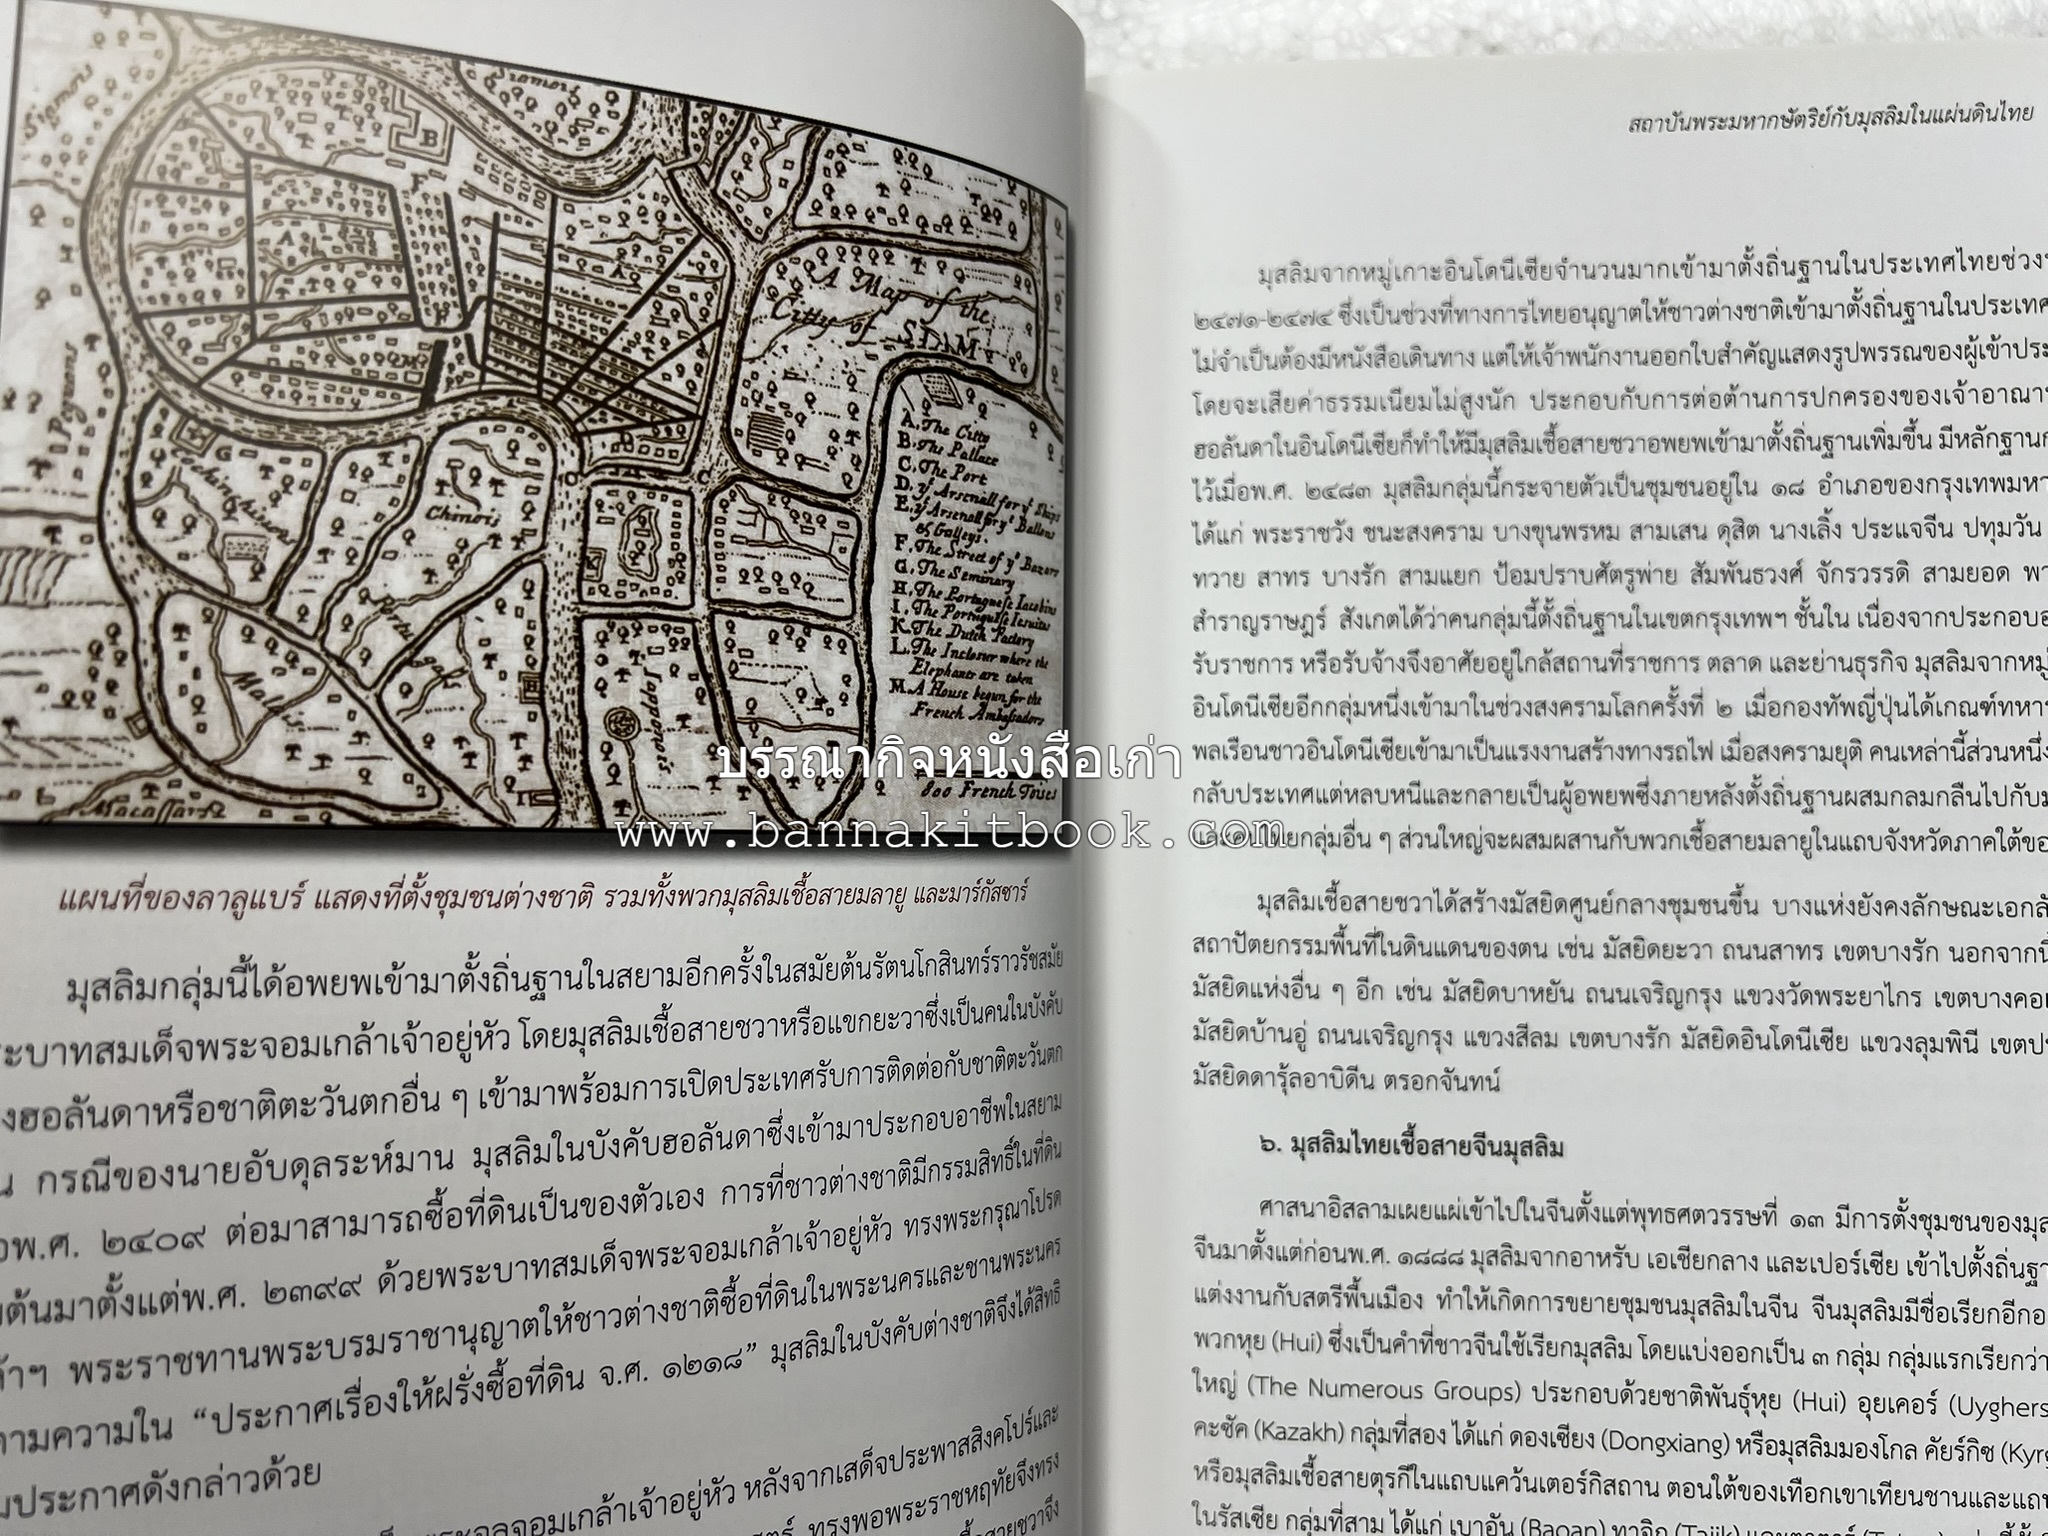 Siamois
Siamois
B
F
A
A
A Map of the
Citty of SIAM
Peguans
M
H
G
D
C
Cochinchinois
Chinois
K
Portuguals
Malais
Japponois
Macassars
A. The Citty
B. The Pallace
C. The Port
D. yͤ Arsenall for yͤ Ships
E. yͤ Arsenall for yͤ Ballons
& Galleys.
F. The Street of yͤ Bazars
G. The Seminary
H. The Portuguese Iacobins
I. The Portuguese Iesuites
K. The Dutch Factory
L. The Incloser where the
Elephants are taken
M. A House begun for the
French Ambassadors
800 French Toises
บรรณากิจหนังสือเก่า
www.bannakitbook.com
แผนที่ของลาลูแบร์ แสดงที่ตั้งชุมชนต่างชาติ รวมทั้งพวกมุสลิมเชื้อสายมลายู และมาร์กัสซาร์
มุสลิมกลุ่มนี้ได้อพยพเข้ามาตั้งถิ่นฐานในสยามอีกครั้งในสมัยต้นรัตนโกสินทร์ราวรัชสมัย
ะบาทสมเด็จพระจอมเกล้าเจ้าอยู่หัว โดยมุสลิมเชื้อสายชวาหรือแขกยะวาซึ่งเป็นคนในบังคับ
งฮอลันดาหรือชาติตะวันตกอื่น ๆ เข้ามาพร้อมการเปิดประเทศรับการติดต่อกับชาติตะวันตก
น กรณีของนายอับดุลระห์มาน มุสลิมในบังคับฮอลันดาซึ่งเข้ามาประกอบอาชีพในสยาม
อพ.ศ. ๒๔๐๙ ต่อมาสามารถซื้อที่ดินเป็นของตัวเอง การที่ชาวต่างชาติมีกรรมสิทธิ์ในที่ดิน
ต้นมาตั้งแต่พ.ศ. ๒๓๙๙ ด้วยพระบาทสมเด็จพระจอมเกล้าเจ้าอยู่หัว ทรงพระกรุณาโปรด
ล้าฯ พระราชทานพระบรมราชานุญาตให้ชาวต่างชาติซื้อที่ดินในพระนครและชานพระนคร
ตามความใน “ประกาศเรื่องให้ฝรั่งซื้อที่ดิน จ.ศ. ๑๒๑๘” มุสลิมในบังคับต่างชาติจึงได้สิทธิ
มประกาศดังกล่าวด้วย
จอมเกล้าเจ้าอยู่หัว หลังจากเสด็จประพาสสิงคโปร์และ
ทรงพอพระราชหฤทัยจึงทรง
สถาบันพระมหากษัตริย์กับมุสลิมในแผ่นดินไทย
มุสลิมจากหมู่เกาะอินโดนีเซียจำนวนมากเข้ามาตั้งถิ่นฐานในประเทศไทยช่วง
๒๔๗๑-๒๔๗๔ ซึ่งเป็นช่วงที่ทางการไทยอนุญาตให้ชาวต่างชาติเข้ามาตั้งถิ่นฐานในประเทศ
ไม่จำเป็นต้องมีหนังสือเดินทาง แต่ให้เจ้าพนักงานออกใบสำคัญแสดงรูปพรรณของผู้เข้าประ
โดยจะเสียค่าธรรมเนียมไม่สูงนัก ประกอบกับการต่อต้านการปกครองของเจ้าอาณา
ฮอลันดาในอินโดนีเซียก็ทำให้มีมุสลิมเชื้อสายชวาอพยพเข้ามาตั้งถิ่นฐานเพิ่มขึ้น มีหลักฐาน
ไว้เมื่อพ.ศ. ๒๔๘๓ มุสลิมกลุ่มนี้กระจายตัวเป็นชุมชนอยู่ใน ๑๘ อำเภอของกรุงเทพมหา
ได้แก่ พระราชวัง ชนะสงคราม บางขุนพรหม สามเสน ดุสิต นางเลิ้ง ประแจจีน ปทุมวัน
ทวาย สาทร บางรัก สามแยก ป้อมปราบศัตรูพ่าย สัมพันธวงศ์ จักรวรรดิ สามยอด พา
สำราญราษฎร์ สังเกตได้ว่าคนกลุ่มนี้ตั้งถิ่นฐานในเขตกรุงเทพฯ ชั้นใน เนื่องจากประกอบอ
รับราชการ หรือรับจ้างจึงอาศัยอยู่ใกล้สถานที่ราชการ ตลาด และย่านธุรกิจ มุสลิมจากหมู่
อินโดนีเซียอีกกลุ่มหนึ่งเข้ามาในช่วงสงครามโลกครั้งที่ ๒ เมื่อกองทัพญี่ปุ่นได้เกณฑ์ทหาร
พลเรือนชาวอินโดนีเซียเข้ามาเป็นแรงงานสร้างทางรถไฟ เมื่อสงครามยุติ คนเหล่านี้ส่วนหนึ่ง
กลับประเทศแต่หลบหนีและกลายเป็นผู้อพยพซึ่งภายหลังตั้งถิ่นฐานผสมกลมกลืนไปกับ
และคนไทยกลุ่มอื่น ๆ ส่วนใหญ่จะผสมผสานกับพวกเชื้อสายมลายูในแถบจังหวัดภาคใต้ขอ
มุสลิมเชื้อสายชวาได้สร้างมัสยิดศูนย์กลางชุมชนขึ้น บางแห่งยังคงลักษณะเอกลั
สถาปัตยกรรมพื้นที่ในดินแดนของตน เช่น มัสยิดยะวา ถนนสาทร เขตบางรัก นอกจากนี้
มัสยิดแห่งอื่น ๆ อีก เช่น มัสยิดบาหยัน ถนนเจริญกรุง แขวงวัดพระยาไกร เขตบางคอ
มัสยิดบ้านอู่ ถนนเจริญกรุง แขวงสีลม เขตบางรัก มัสยิดอินโดนีเซีย แขวงลุมพินี เขตป
มัสยิดดารุ้ลอาบิดีน ตรอกจันทน์
๖. มุสลิมไทยเชื้อสายจีนมุสลิม
ศาสนาอิสลามเผยแผ่เข้าไปในจีนตั้งแต่พุทธศตวรรษที่ ๑๓ มีการตั้งชุมชนของมุส
จีนมาตั้งแต่ก่อนพ.ศ. ๑๘๘๘ มุสลิมจากอาหรับ เอเชียกลาง และเปอร์เซีย เข้าไปตั้งถิ่นฐา
แต่งงานกับสตรีพื้นเมือง ทำให้เกิดการขยายชุมชนมุสลิมในจีน จีนมุสลิมมีชื่อเรียกอีก
พวกหุย (Hui) ซึ่งเป็นคำที่ชาวจีนใช้เรียกมุสลิม โดยแบ่งออกเป็น ๓ กลุ่ม กลุ่มแรกเรียกว่า
ใหญ่ (The Numerous Groups) ประกอบด้วยชาติพันธุ์หุย (Hui) อุยเคอร์ (Uyghers
คะซัค (Kazakh) กลุ่มที่สอง ได้แก่ ดองเซียง (Dongxiang) หรือมุสลิมมองโกล คัยร์กิซ (Kyrg
หรือมุสลิมเชื้อสายตุรกีในแถบแคว้นเตอร์กิสถาน ตอนใต้ของเทือกเขาเทียนชานและแถ
ในรัสเซีย กลุ่มที่สาม ได้แก่ เบาอัน (Baoan) ทาจิก (Tajik)